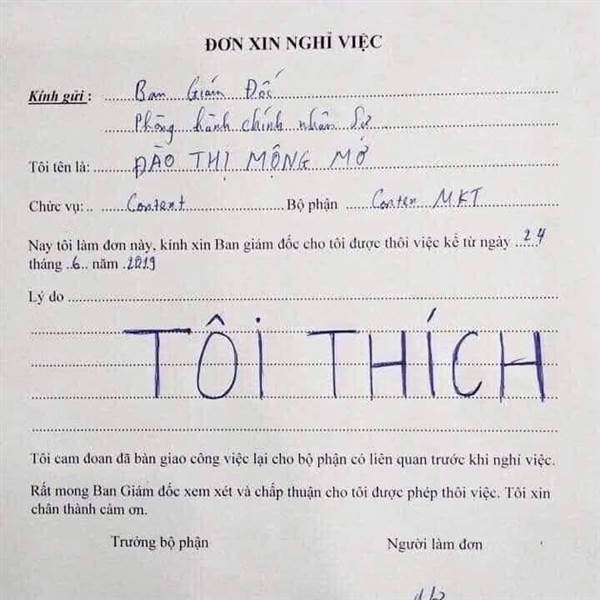 ĐƠN XIN NGHỈ VIỆC
Kính gửi : Ban Giám Đốc
Phòng hành chính nhân sự
Tôi tên là: ĐÀO THỊ MỘNG MƠ
Chức vụ:.. Content Bộ phận Conten MKT
Nay tôi làm đơn này, kính xin Ban giám đốc cho tôi được thôi việc kể từ ngày 24
tháng .6.. năm .2019
Lý do
TÔI THÍCH
Tôi cam đoan đã bàn giao công việc lại cho bộ phận có liên quan trước khi nghỉ việc.
Rất mong Ban Giám đốc xem xét và chấp thuận cho tôi được phép thôi việc. Tôi xin
chân thành cảm ơn.
Trưởng bộ phận Người làm đơn